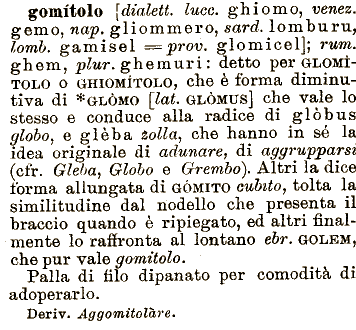 gomítolo [dialett. lucc. ghiomo, venez.
gemo, nap. gliommero, sard. lomburu,
lomb. gamisel = prov. glomicel]; rum.
ghem, plur. ghemuri: detto per GLOMÍ-
TOLO o GHIOMÍTOLO, che è forma diminu-
tiva di *GLÒMO [lat. GLÒMUS] che vale lo
stesso e conduce alla radice di glòbus
globo, e glèba zolla, che hanno in sé la
idea originale di adunare, di aggrupparsi
(cfr. Gleba, Globo e Grembo). Altri la dice
forma allungata di GÓMITO cubito, tolta la
similitudine dal nodello che presenta il
braccio quando è ripiegato, ed altri final-
mente lo raffronta al lontano ebr. GOLEM,
che pur vale gomitolo.
Palla di filo dipanato per comodità di
adoperarlo.
Deriv. Aggomitolàre.